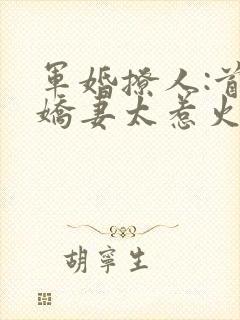 軍婚撩人:首
嬌妻太惹火
胡寧生